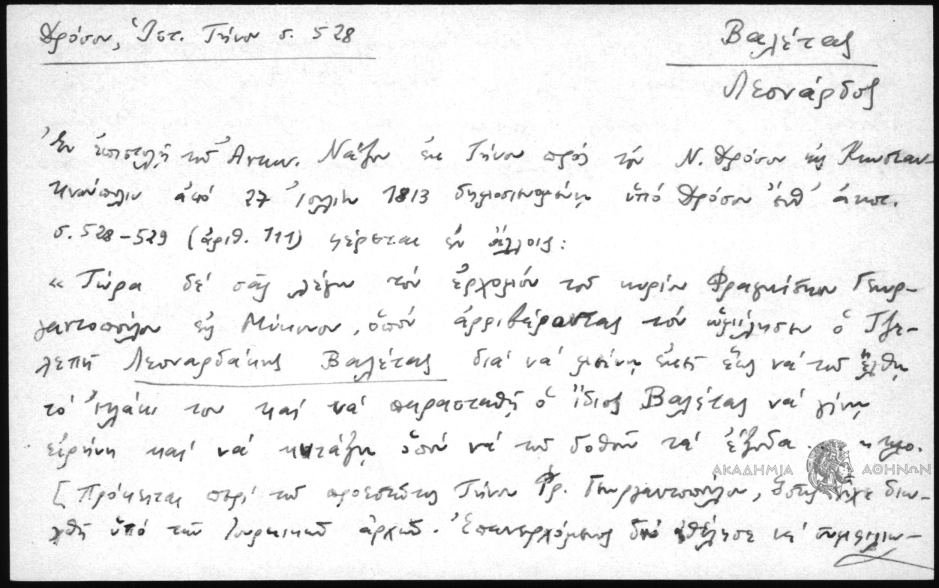 Δρόσου, Ἱστ. Τήνου σ. 528
Βαλέτας
Λεονάρδος
Ἐν ἐπιστολῇ τοῦ Ἀντων. Νάζου ἐκ Τήνου πρὸς τὸν Ν. Δρόσον εἰς Κωνσταν-
τινούπολιν ἀπὸ 27 Ἰουλίου 1813 δημοσιευομένῃ ὑπὸ Δρόσου ἔνθ' ἀνωτ.
σ. 528-529 (ἀριθ. 111) φέρεται ἐν ἄλλοις:
« Τώρα δὲ σᾶς λέγω τὸν ἐρχομὸν τοῦ κυρίου Φραγκίσκου Γεωρ-
γαντοπούλου εἰς Μύκονον, ὁποῦ ἀρριβάροντας τὸν ὡμίλησεν ὁ Τζε-
λεπῆ Λεοναρδάκης Βαλέτας διὰ νὰ μείνῃ ἐκεῖ ἕως νὰ τοῦ ἔλθῃ
τὸ του καὶ νὰ παρασταθῇ ὁ ἴδιος Βαλέτας νὰ γίνῃ
εἰρήνη καὶ νὰ κυτάξῃ ὁποῦ νὰ τοῦ δοθοῦν τὰ ἔξοδα. κτλ.
[Πρόκειται περὶ τοῦ προεστῶτος Τήνου Φρ. Γεωργαντοπούλου, ὅστις εἶχε διω-
χθῆ ὑπὸ τῶν Τουρκικῶν ἀρχῶν. Ἐπανερχόμενος ἠθέλησε νὰ συμφιλιω-
ΑΚΑΔΗΜΙΑ ΑΘΗΝΩΝ